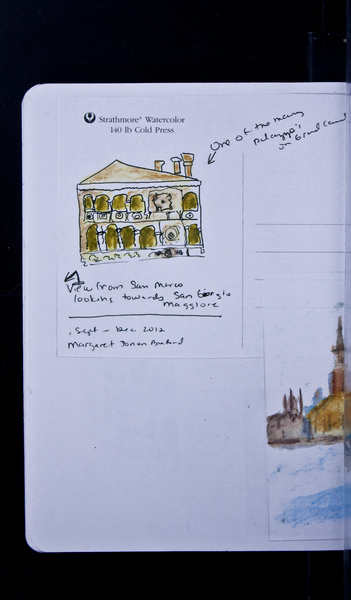 Strathmore® Watercolor
140 lb Cold Press
One of the many
Palazzo's
on Grand Canal
View from San Marco
looking towards San Giorgio
Maggiore
Sept - Dec 2012
Margaret